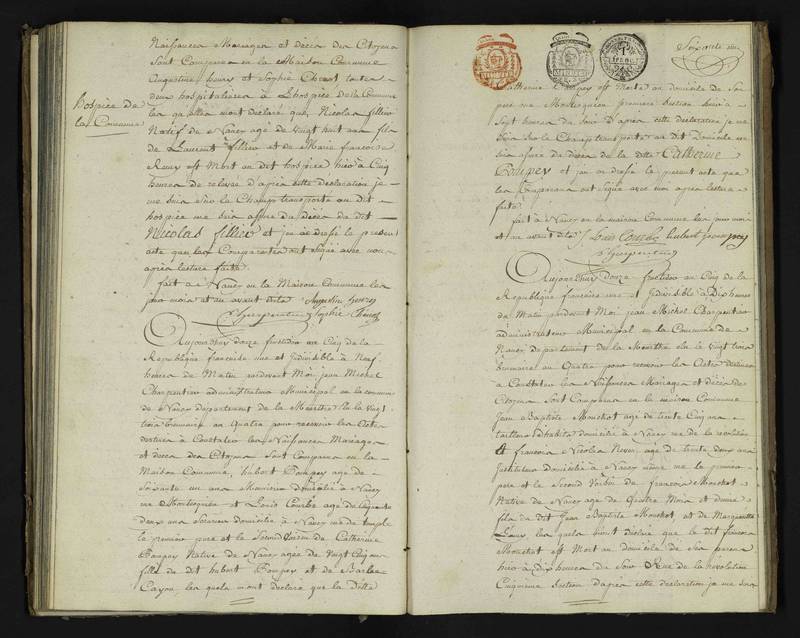 Naissances Mariages et décès des Citoyens
Sont Comparus en la Maison Commune
Augustine henry et Sophie toutes
deux hospitalières à L'hospice de la Commune
Les quelles m'ont déclaré que Nicolas fillier
Natif de Nancy agé de vingt huit ans fils
de Laurent fillier et de Marie francoise
est Mort au dit hospice hier à Cinq
heures de relevée d'après cette déclaration je
me suis sur le Champ transporté au dit
hospice me suis assuré du décès du dit
Nicolas fillier et j'en ai dressé le présent
acte que les Comparants ont signé avec moi
après lecture faite
fait à Nancy en la Maison Commune les
jour mois et an avant dits Augustin henry
Charpentier Sophie
hospice de
la Commune
Aujourd'huy douze fructidor an Cinq de la
République françoise une et indivisible à Neuf
heures du Matin pardevant Moi jean Michel
Charpentier administrateur Municipal en la commune
de Nancy département de la Meurthe élu le vingt
trois brumaire an Quatre pour recevoir les Actes
destinés à Constater les Naissances Mariages
et décès des Citoyens Sont Comparus en la
Maison Commune, hubert Poupey agé de
Soixante un ans domicilié à Nancy
rue Montesquieu et Louis Courbe agé de Cinquante
deux ans domicilié à Nancy rue du temple
le premier père et le Second Voisin de Catherine
Poupey Native de Nancy agée de vingt Cinq ans
fille du dit hubert Poupey et de Barbe
Cayon les quels m'ont déclaré que la Ditte
Soixante
Catherine Poupey est Morte au domicile de Son
père rue Montesquieu première Section hier à
Sept heures du Soir D'après cette déclaration je me
suis Sur le Champ transporté au dit Domicile me
suis assuré du décès de la ditte Catherine
Poupey et j'en ai dressé le présent acte que
les Comparans ont signé avec moi après lecture
faite
fait à Nancy en la maison Commune les jour mois
et an avant dits Louis Courbe hubert poupey
Charpentier
Aujourd'huy douze fructidor an Cinq de la
République françoise une et Indivisible à Dix heures
du Matin pardevant Moi jean Michel Charpentier
administrateur Municipal en la Commune de
Nancy département de la Meurthe élu le vingt trois
brumaire an Quatre pour recevoir les Actes destinés
à Constater les Naissances Mariages et décès des
Citoyens Sont Comparus en la maison Commune
Jean Baptiste Mouchot agé de trente Cinq ans
tailleur d'habits domicilié à Nancy rue de la révolution
et francois Nicolas agé de trente deux ans
Instituteur domicilié à Nancy même rue le premier
père et le Second Voisin de francois Mouchot
Native de Nancy agé de Quatre Mois et demi
fils du dit Jean Baptiste Mouchot, et de Marguerite
les quels m'ont déclaré que le dit francois
Mouchot est Mort au domicile de Ses parens
hier à Dix heures du Soir Rue de la révolution
Cinquième Section d'après cette déclaration je me suis